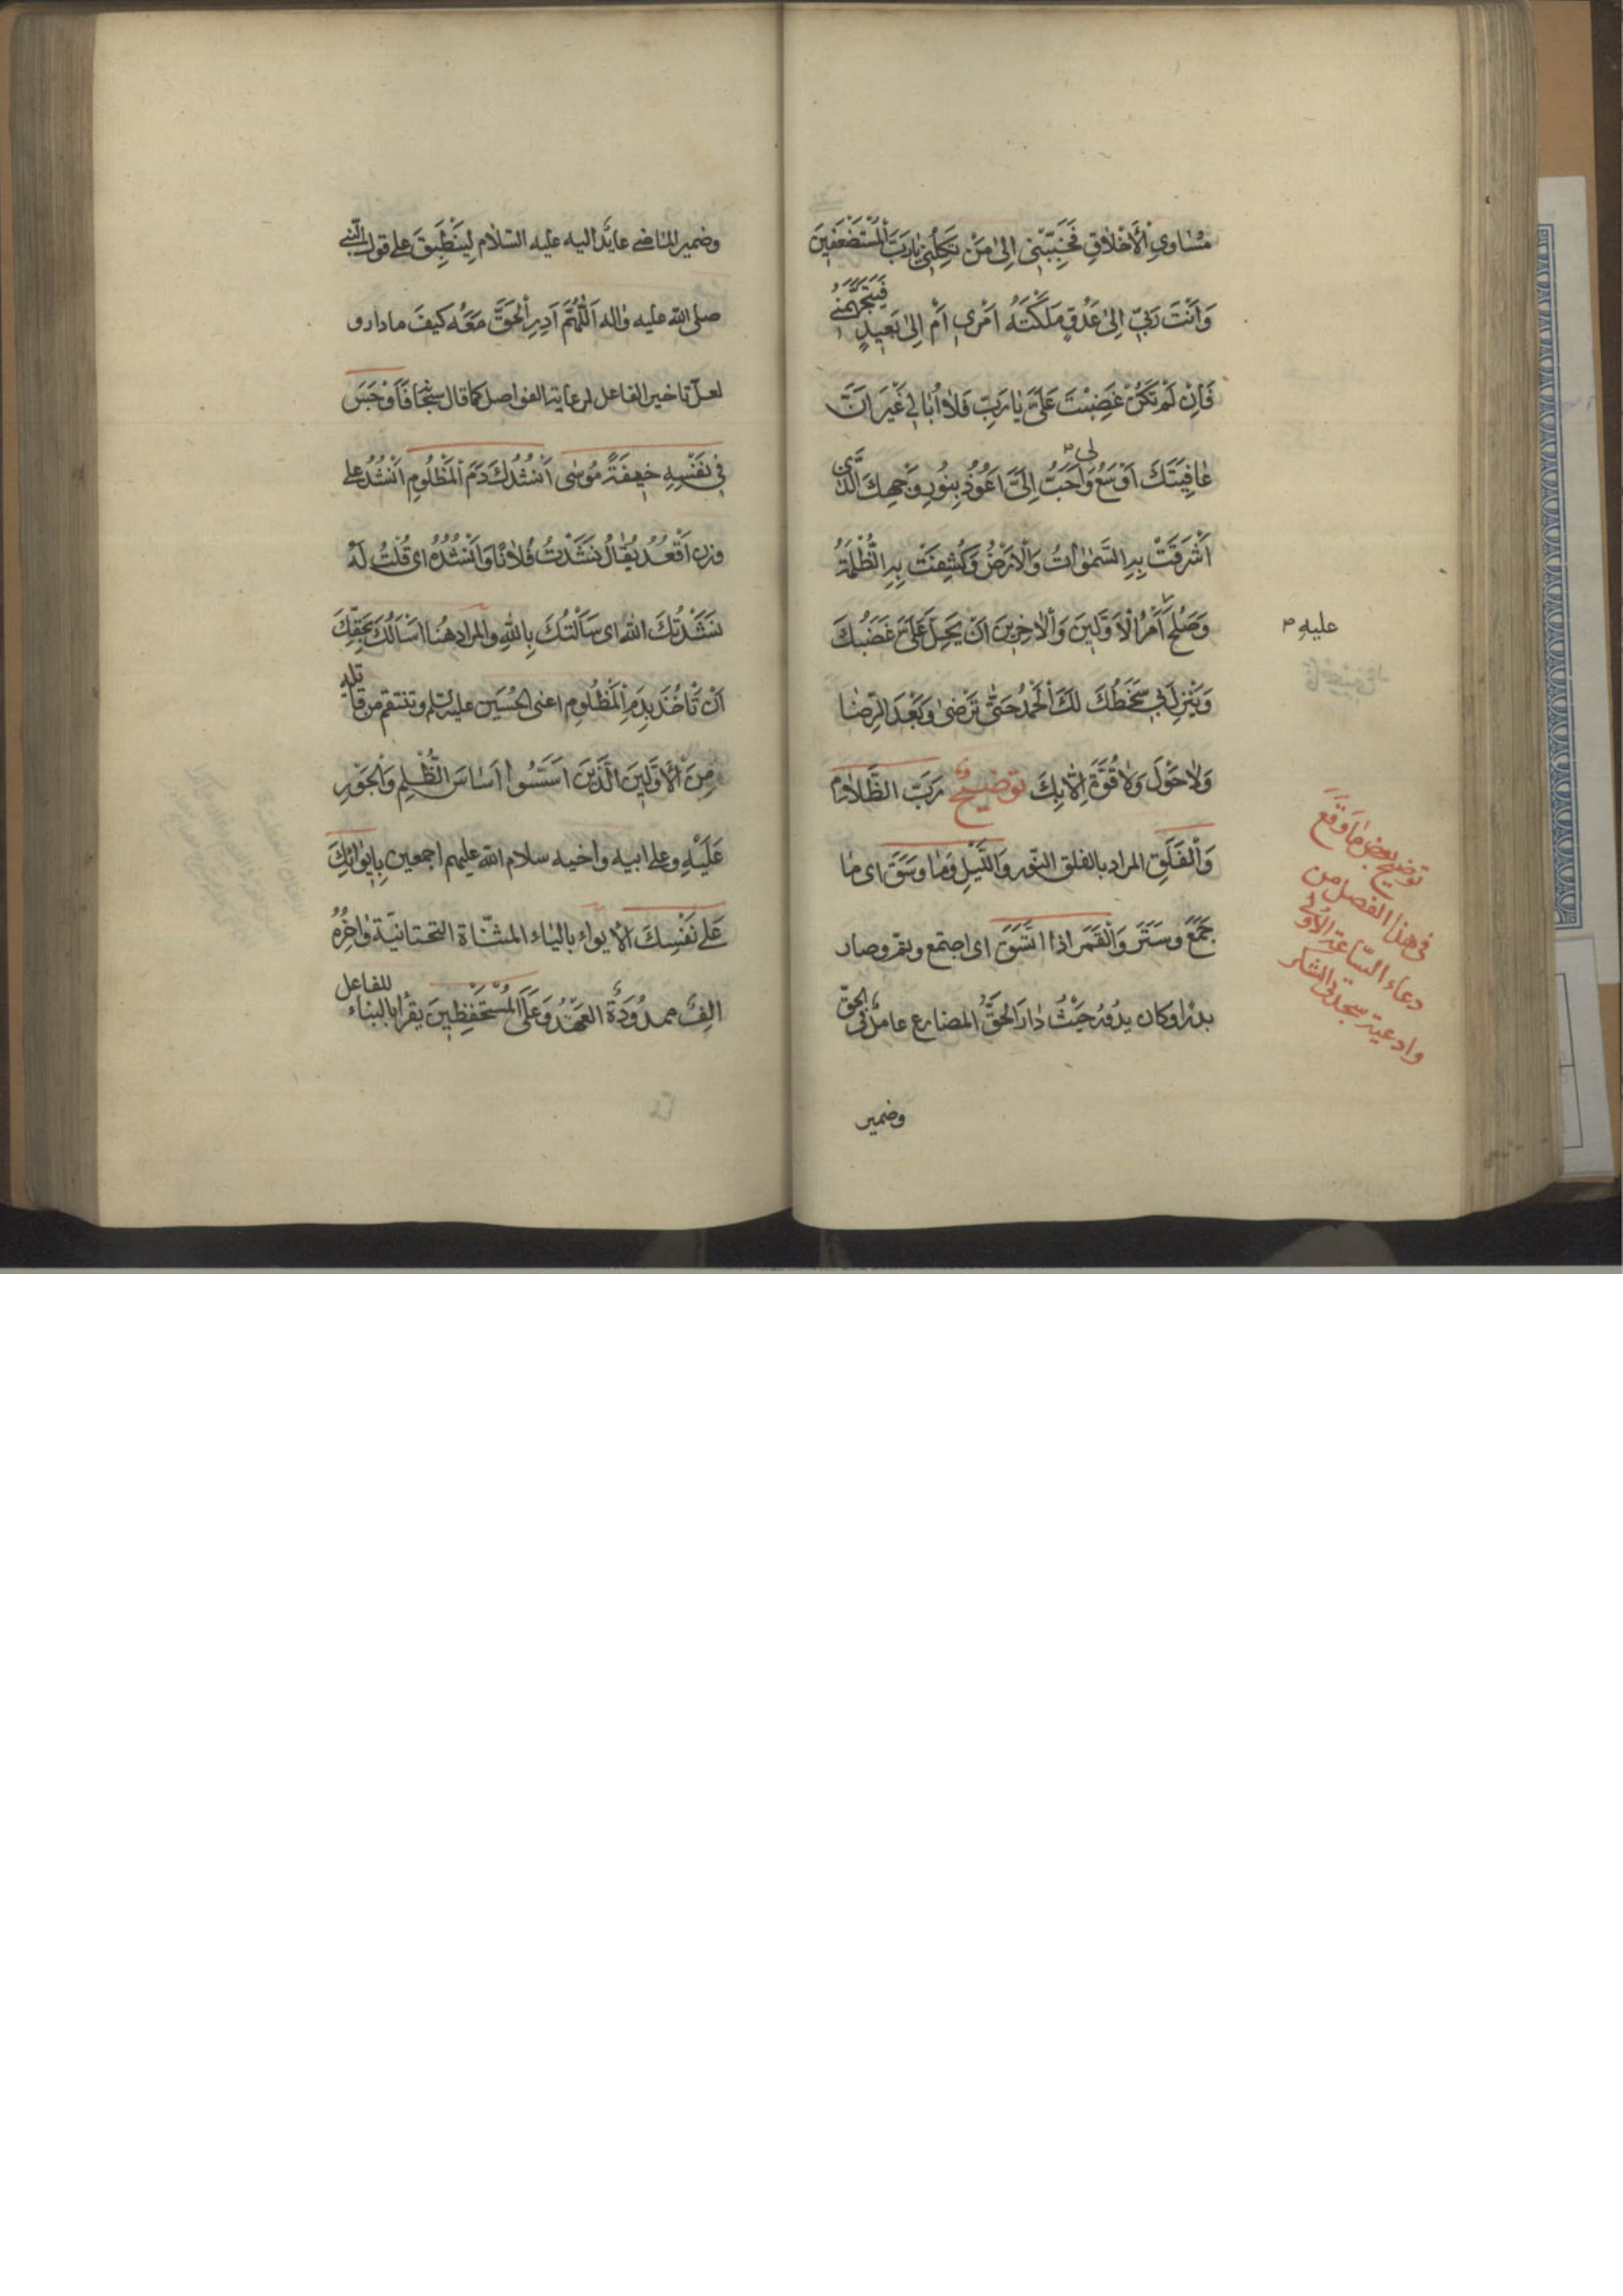 مَسَاوِي الْأَخْلَاقِ فَجَنِّبْنِي إِلىٰ مَنْ تَكِلُنِي يَا رَبَّ الْمُسْتَضْعَفِينَ
وَأَنْتَ رَبِّي إِلىٰ عَدُوٍّ مَلَّكْتَهُ أَمْرِي أَمْ إِلىٰ بَعِيدٍ فَيَتَجَهَّمَنِي
فَإِنْ لَمْ تَكُنْ غَضِبْتَ عَلَيَّ يَا رَبِّ فَلَا أُبَالِي غَيْرَ أَنَّ
عَافِيَتَكَ أَوْسَعُ لِي وَأَحَبُّ إِلَيَّ أَعُوذُ بِنُورِ وَجْهِكَ الَّذِي
أَشْرَقَتْ بِهِ السَّمٰوَاتُ وَالْأَرْضُ وَكُشِفَتْ بِهِ الظُّلْمَةُ
وَصَلُحَ أَمْرُ الْأَوَّلِينَ وَالْآخِرِينَ أَنْ يَحِلَّ عَلَيَّ غَضَبُكَ
عليهِ
وَيَنْزِلَ بِي سَخَطُكَ لَكَ الْحَمْدُ حَتّٰى تَرْضىٰ وَبَعْدَ الرِّضَا
وَلَا حَوْلَ وَلَا قُوَّةَ إِلَّا بِكَ توضيحٌ رَبَّ الظَّلَامِ
وَالْفَلَقِ المراد بالفلق النّور وَاللَّيْلِ وَمَا وَسَقَ اى ما
جَمَعَ وسَتَرَ وَالْقَمَرِ اذا اتَّسَقَ اى اجتمع وتمّ وصار
بدرًا وكان يدُورُ حَيْثُ دَارَ الْحَقُّ المضارع عاملٌ فى الحقّ
توضيح بعض ما وقع
فى هذا الفصل من
دعاء السّاعة الأولى
وادعية سجدتى الشكر
وضمير
وضمير الماضى عايدٌ اليه عليه السّلام لِيَنْطَبِقَ على قول النّبى
صلى الله عليه واله اَللّٰهُمَّ أَدِرِ الْحَقَّ مَعَهُ كَيْفَ مادار و
لعلّ تاخير الفاعل لرعاية الفواصل كما قال سُبْحَانه فَأَوْجَسَ
فِي نَفْسِهِ خِيفَةً مُوسىٰ أَنْشُدُكَ دَمَ الْمَظْلُومِ أَنْشُدُ على
وزن اَقْعُدُ يُقَالُ نَشَدْتُ فُلَانًا وَأَنْشُدُهُ اى قُلْتُ لَهُ
نَشَدْتُكَ الله اى سَأَلْتُكَ بِاللهِ والمراد هُنا أَسْأَلُكَ بِحَقِّكَ
أَنْ تَأْخُذَ بِدَمِ الْمَظْلُومِ اعنى الحُسَيْن عليه السلم وتنتقم من قاتليه
مِنَ الْأَوَّلِينَ الَّذِينَ أَسَّسُوا أَسَاسَ الظُّلْمِ وَالْجَوْرِ
عَلَيْهِ وعلى ابيه واخيه سلام الله عليهم اجمعين بِإِيوَائِكَ
عَلىٰ نَفْسِكَ الايواء بالياء المثنّاة التحتانيّة وَاخِرُهُ
اَلِفٌ ممدُودَةٌ العَهْدُ وَعَلَى الْمُسْتَحْفَظِينَ يقرأ بالبناء للفاعل